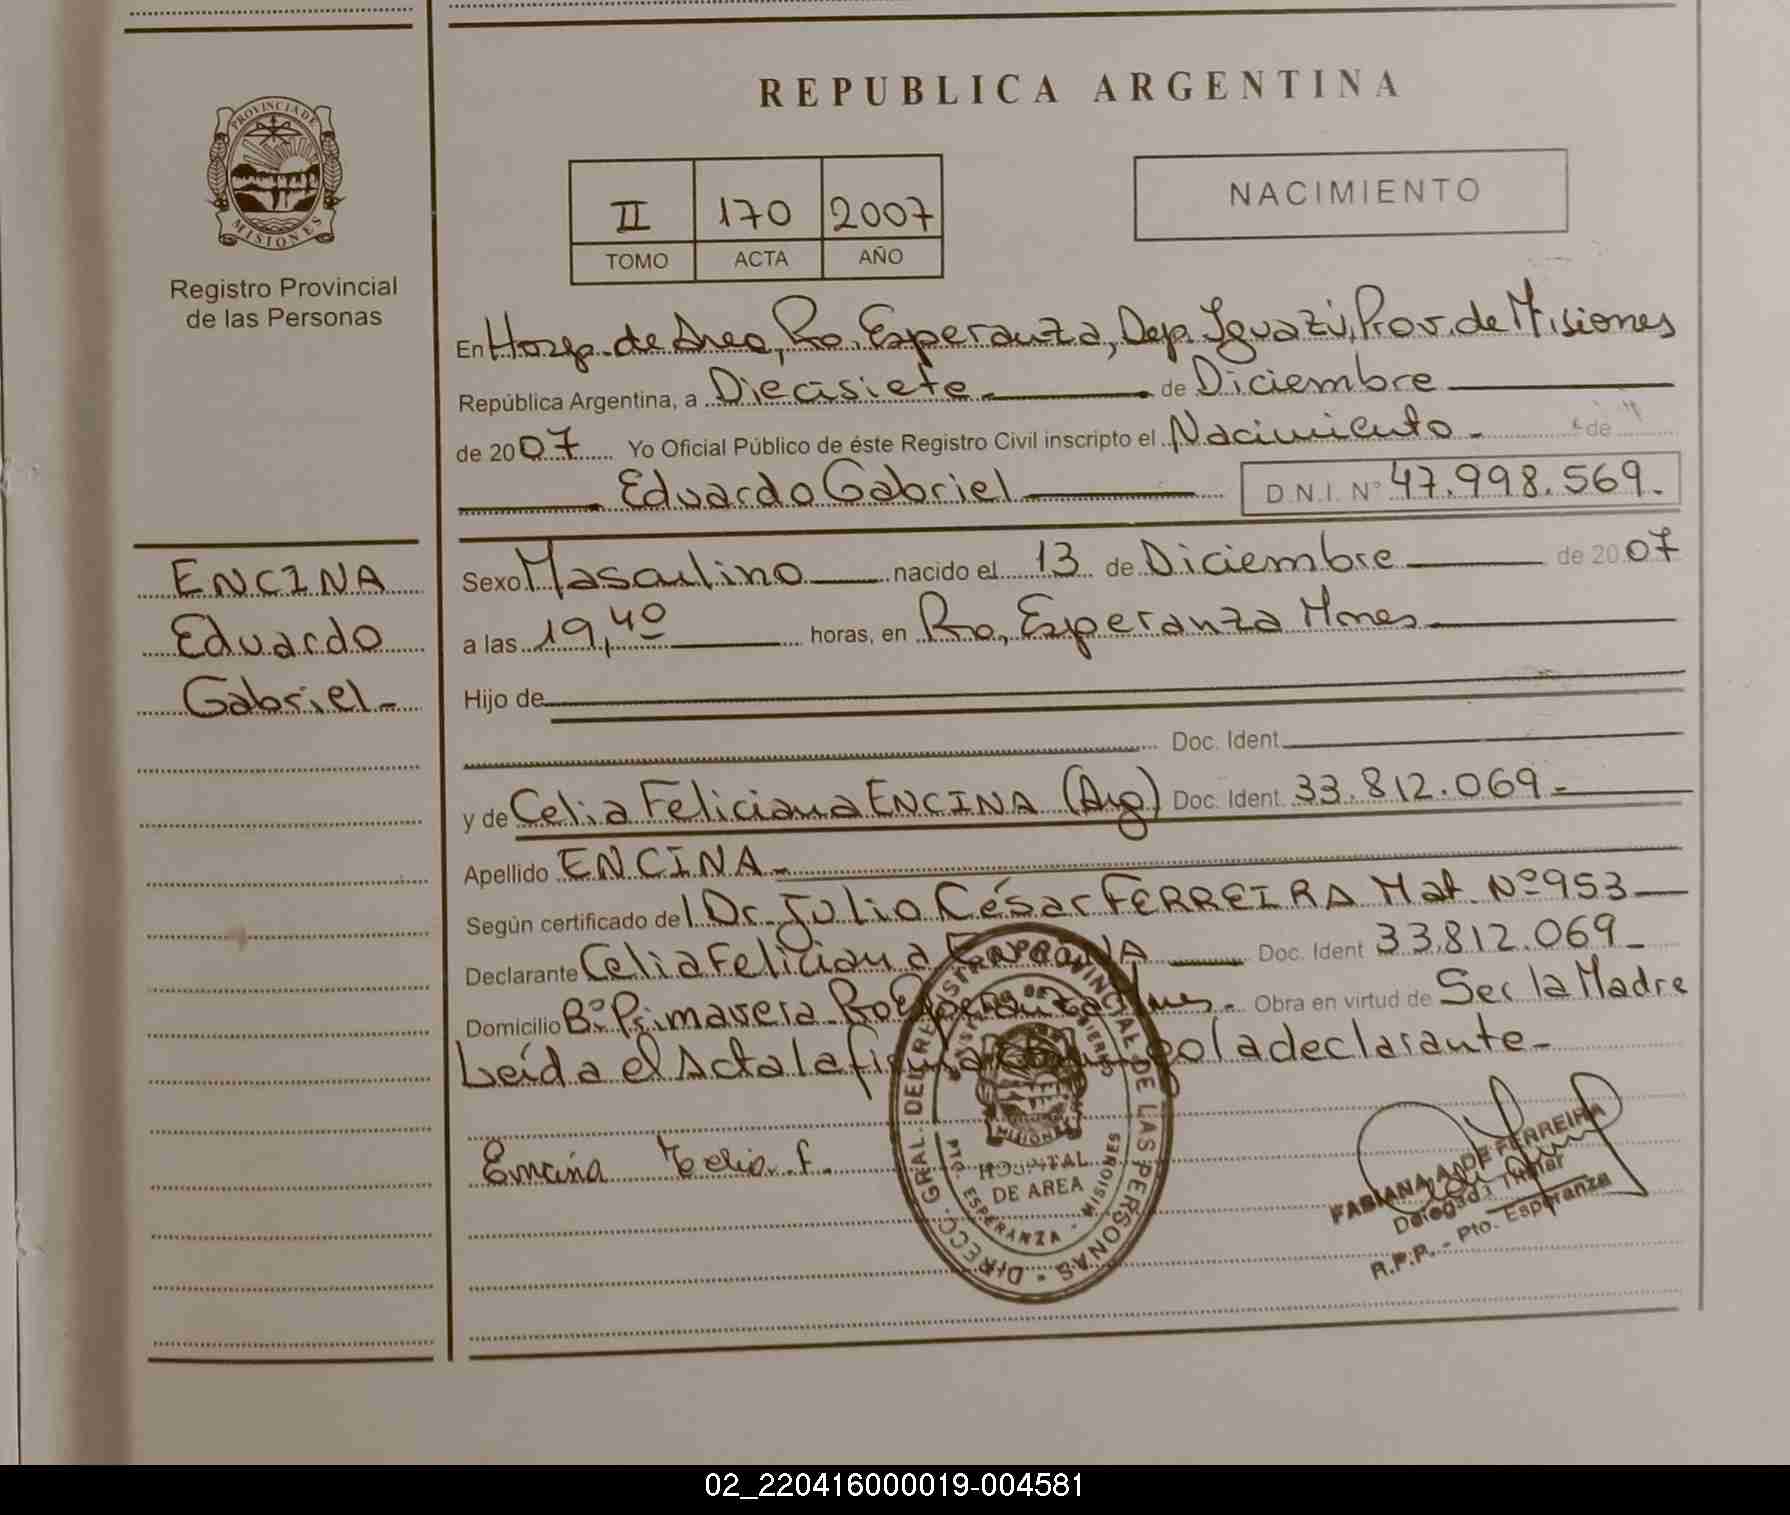 REPUBLICA ARGENTINA
PROVINCIA DE
MISIONES
Registro Provincial
de las Personas
II 170 2007
TOMO ACTA AÑO
NACIMIENTO
En Hosp. de Area, Pto. Esperanza, Dep. Iguazú, Prov. de Misiones
República Argentina, a Diecisiete de Diciembre
de 2007 Yo Oficial Público de éste Registro Civil inscripto el Nacimiento - de
Eduardo Gabriel D.N.I. Nº 47.998.569.
ENCINA
Eduardo
Gabriel-
Sexo Masculino nacido el 13 de Diciembre de 2007
a las 19,40 horas, en Pto, Esperanza Mnes
Hijo de
Doc. Ident.
y de Celia Feliciana ENCINA (Arg) Doc. Ident. 33.812.069-
Apellido ENCINA-
Según certificado del Dr. Julio César FERREIRA Mat. Nº 953
Declarante Celia Feliciana ENCINA Doc. Ident 33.812.069-
Domicilio Bº Primavera Pto Esperanza Mnes.- Obra en virtud de Ser la Madre
Leída el Acta la firma la declarante-
Encina Celia. f.
DIRECC. GRAL. DEL REGISTRO PROVINCIAL DE LAS PERSONAS
MISIONES
HOSPITAL
DE AREA
PTO. ESPERANZA - MISIONES
FABIANA A. DE FERREIRA
Delegada Titular
R.P.P. - Pto. Esperanza
02_220416000019-004581